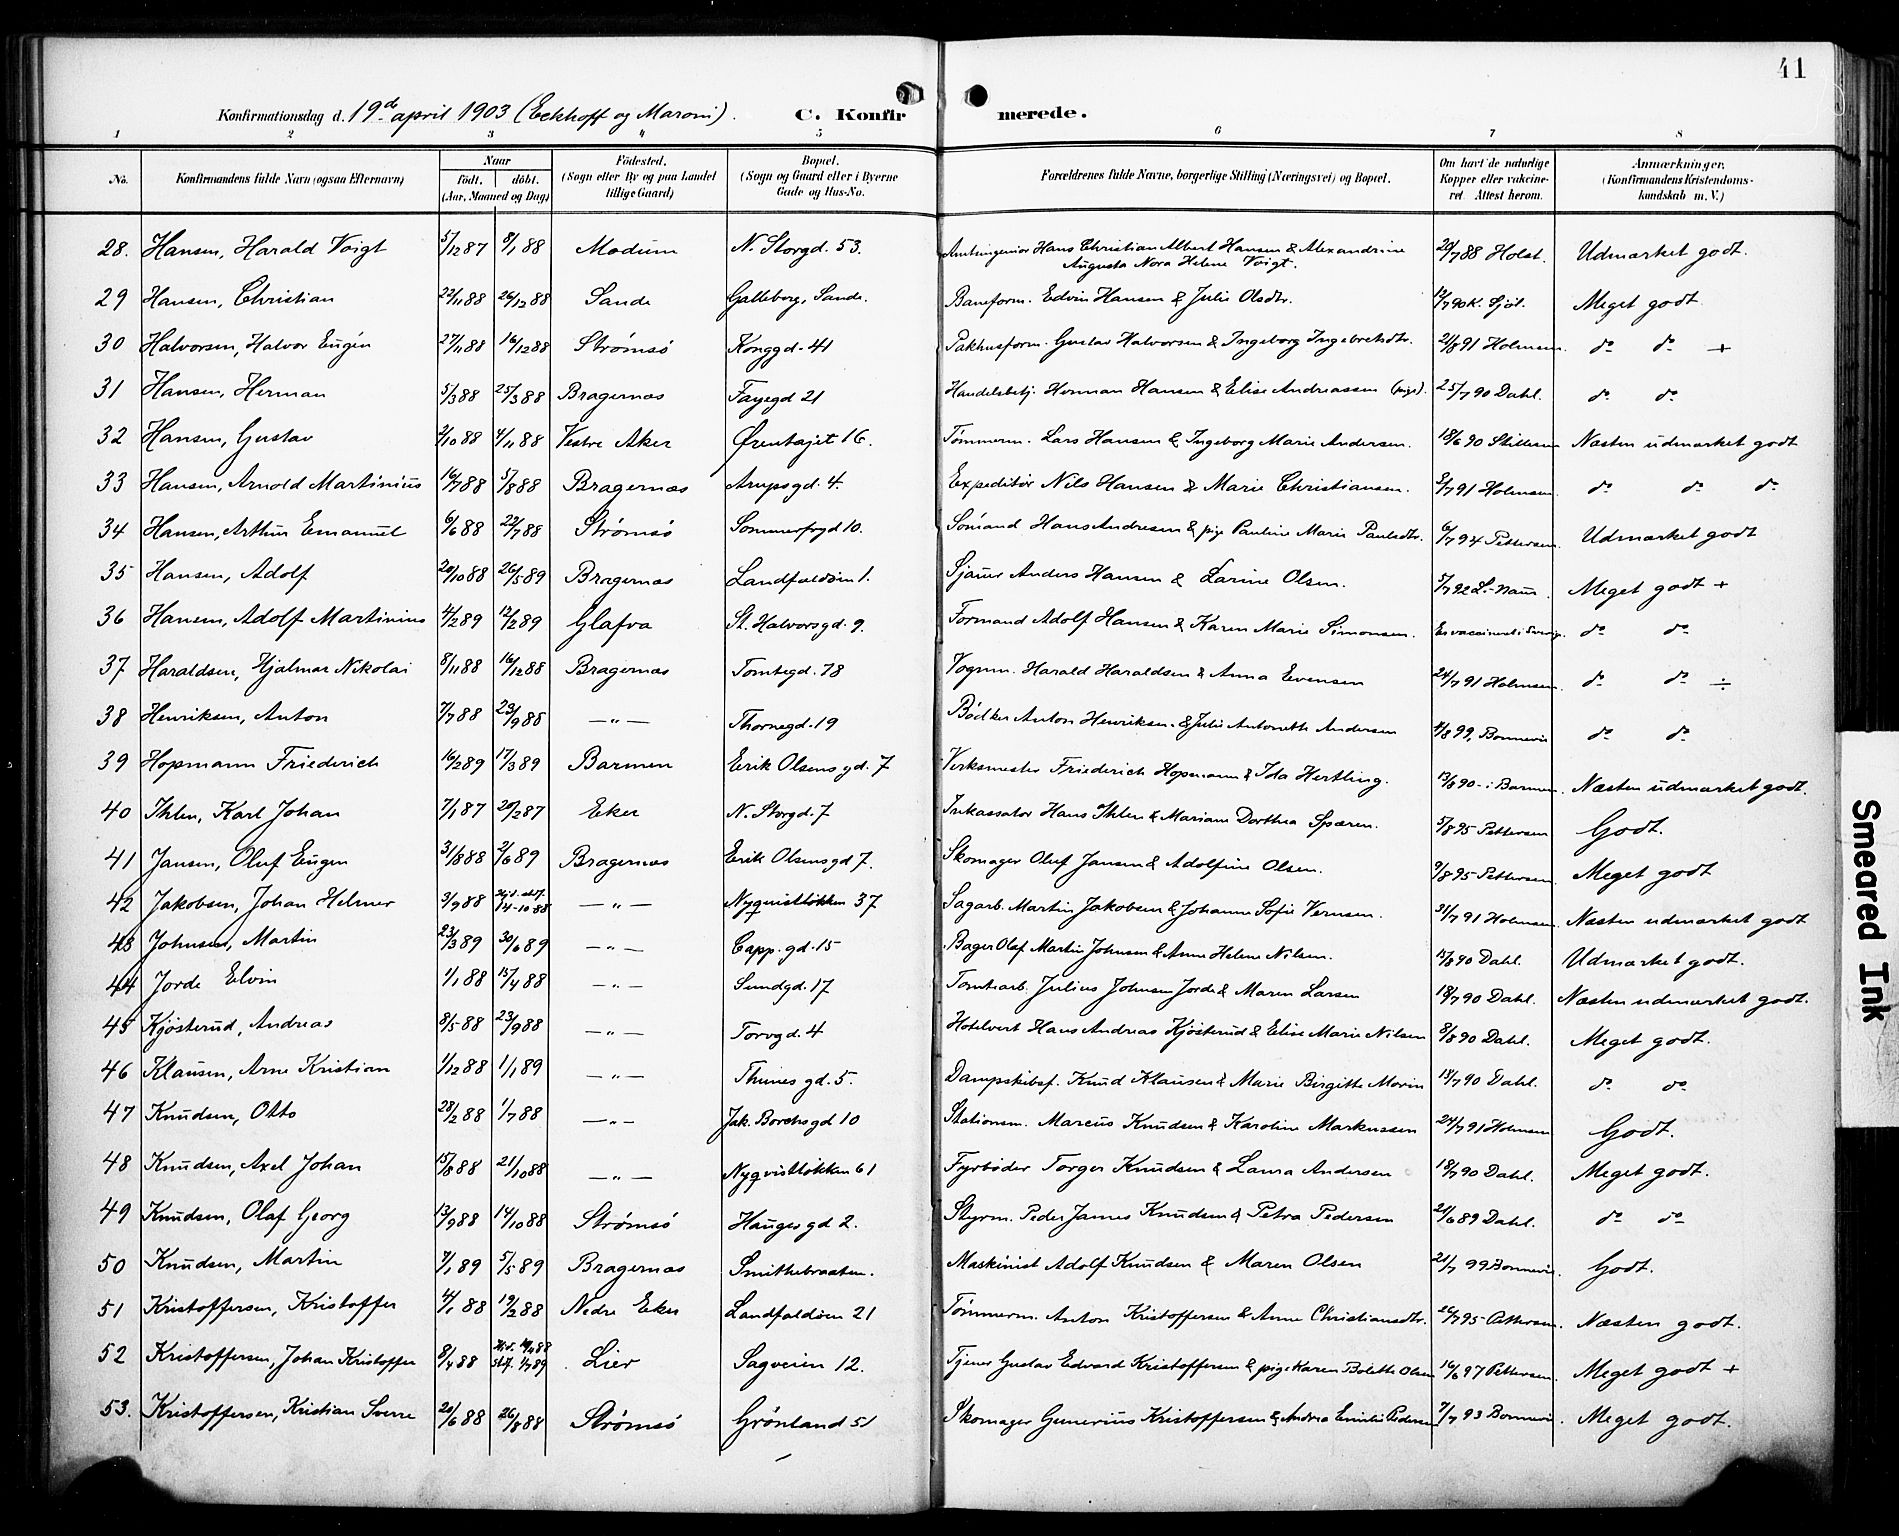 41
Konfirmationsdag d. 19de april 1903 (Eckhoff og Maroni). C. Konfirmerede.
1 2 3 4 5 6 7 8
No. Konfirmandens fulde Navn (ogsaa Efternavn) Naar født, døbt. (Aar, Maaned og Dag) Fødested. (Sogn eller By og paa Landet tillige Gaard) Bopæl. (Sogn og Gaard eller i Byerne Gade og Hus-No. Forældrenes fulde Navne, borgerlige Stilling (Næringsvei) og Bopæl. Om havt de naturlige Kopper eller vakcineret. Attest herom. Anmærkninger. (Konfirmandens Kristendomskundskab m. V.)
28. Hansen, Harald Voigt 5/12 87 8/1 88 Modum N. Storgd. 53. Amtsingeniør Hans Christian Albert Hansen & Alexandrine Augusta Nora Helene Voigt. 20/7 88 Holst. Udmærket godt.
29 Hansen, Christian 22/11 88 26/12 88 Sande Galleberg, Sande. Baneform. Edvin Hansen & Julie Olsdtr. 12/7 90 K. Sjøl. Meget godt
30 Halvorsen, Halvor Eugén 27/11 88 16/12 88 Strømsø Konggd. 41 Pakhusform. Gustav Halvorsen & Ingeborg Ingebretsdtr. 21/8 91 Holmsen. do do +
31 Hansen, Herman 5/3 88 25/3 88 Bragernæs Fayegd 21 Handelsbetj. Herman Hansen & Elise Andreassen (pige). 25/7 90 Dahl. do do
32 Hansen, Gustav 2/10 88 4/11 88 Vestre Aker Ørentajet 16. Tømmerm. Lars Hansen & Ingeborg Marie Andersen. 18/6 90 Næsten udmærket godt
33 Hansen, Arnold Martinius 16/7 88 5/8 88 Bragernæs Arupsgd. 4. Expeditør Nils Hansen & Marie Christiansen. 2/7 91 Holmsen do do do
34 Hansen, Arthur Emanuel 6/6 88 22/7 88 Strømsø Sommerfrydg 10. Sømand Hans Andresen & pige Pauline Marie Paulsdtr. 6/7 94 Pettersen. Udmærket godt
35 Hansen, Adolf 20/10 88 26/5 89 Bragernæs Landfaldøen 1. Sjauer Anders Hansen & Larine Olsen. 5/7 92 Meget godt +
36 Hansen, Adolf Martinius 4/2 89 12/2 89 Glafva St. Halvorsgd. 9. Formand Adolf Hansen & Karen Marie Simonsen. Er vaccineret i Sverig. do do
37 Haraldsen, Hjalmar Nikolai 8/11 88 16/12 88 Bragernæs Tomtegd. 78 Vognm. Harald Haraldsen & Anna Evensen 24/7 91 Holmsen. do do ÷
38 Henriksen, Anton 7/7 88 23/9 88 — " — Thornegd. 19 Bødker Anton Henriksen & Julie Antonette Andersen 4/8 99, Bonnevie do do
39 Hopmann Friederich 16/2 89 17/3 89 Barmen Erik Olsens gd. 7 Verksmester Friederich Hopmann & Ida Hertling. 13/6 90 - i Barmen. Næsten udmærket godt.
40 Ihlen, Karl Johan 7/1 87 20/2 87 Eker N. Storgd. 7 Inkassator Hans Ihlen & Mariane Dorthea Spæren. 5/8 95 Pettersen Godt.
41 Jansen, Oluf Eugen 31/8 88 2/6 89 Bragernæs Erik Olsensgd 7. Skomager Oluf Jansen & Adolfine Olsen. 9/8 95 Pettersen. Meget godt
42 Jakobsen, Johan Helmer 3/9 88 14-10 88 — " — Nyquistløkken 37 Sagarb. Martin Jakobsen & Johanne Sofie Vernsen. 31/7 91 Holmsen. Næsten udmærket godt
43 Johnsen, Martin 23/3 89 30/6 89 — " — Capp. gd. 15 Bager Olaf Martin Johnsen & Anne Helene Nilsen. 15/8 90 Dahl. Udmærket godt.
44 Jorde Elvin 1/1 88 15/4 88 — " — Sundgd. 17 Tomtearb. Julius Johnsen Jorde & Maren Larsen 18/7 90 Dahl. Næsten udmærket godt.
45 Kjøsterud, Andreas 8/5 88 23/9 88 — " — Torvgd. 4 Hotelvert Hans Andreas Kjøsterud & Elise Marie Nilsen 8/8 90 Dahl. Meget godt.
46 Klausen, Arne Kristian 1/12 88 1/1 89 — " — Thunes gd. 5. Dampskibsf. Knud Klausen & Marie Birgitte Morin 18/7 90 Dahl. do do
47 Knudsen, Otto 28/2 88 1/7 88 — " — Jak. Borchsgd 10 Stationsm. Marcus Knudsen & Karoline Markussen 24/7 91 Holmsen Godt.
48 Knudsen, Axel Johan 15/8 88 21/10 88 — " — Nyqvistløkken 61 Fyrbøder Torger Knudsen & Laura Andersen 18/7 90 Dahl. Meget godt.
49 Knudsen, Olaf Georg 13/9 88 14/10 88 Strømsø Hauges gd 2. Styrm. Peder James Knudsen & Petra Pedersen 21/6 89 Dahl. do do
50 Knudsen, Martin 7/1 89 5/5 89 Bragernæs Smithebraaten. Maskinist Adolf Knudsen & Maren Olsen 21/7 99 Bonnevie. Godt.
51 Kristoffersen, Kristoffer 4/1 88 19/2 88 Nedre Eker Landfaldøen 21 Tømmerm. Anton Kristoffersen & Anne Christiansdtr. 26/7 95 Pettersen. Næsten godt.
52 Kristoffersen, Johan Kristoffer 8/4 88 Lier Sagveien 12. Tjener Gustav Edvard Kristoffersen & pige Karen Bolette Olsen 16/6 97 Pettersen. Meget godt +
53. Kristoffersen, Kristian Sverre 20/6 88 26/8 88 Strømsø Grønland 51 Skomager Gunerius Kristoffersen & Andrea Emilie Pedersen 7/7 93 Bonnevie. Meget godt.
Smeared Ink